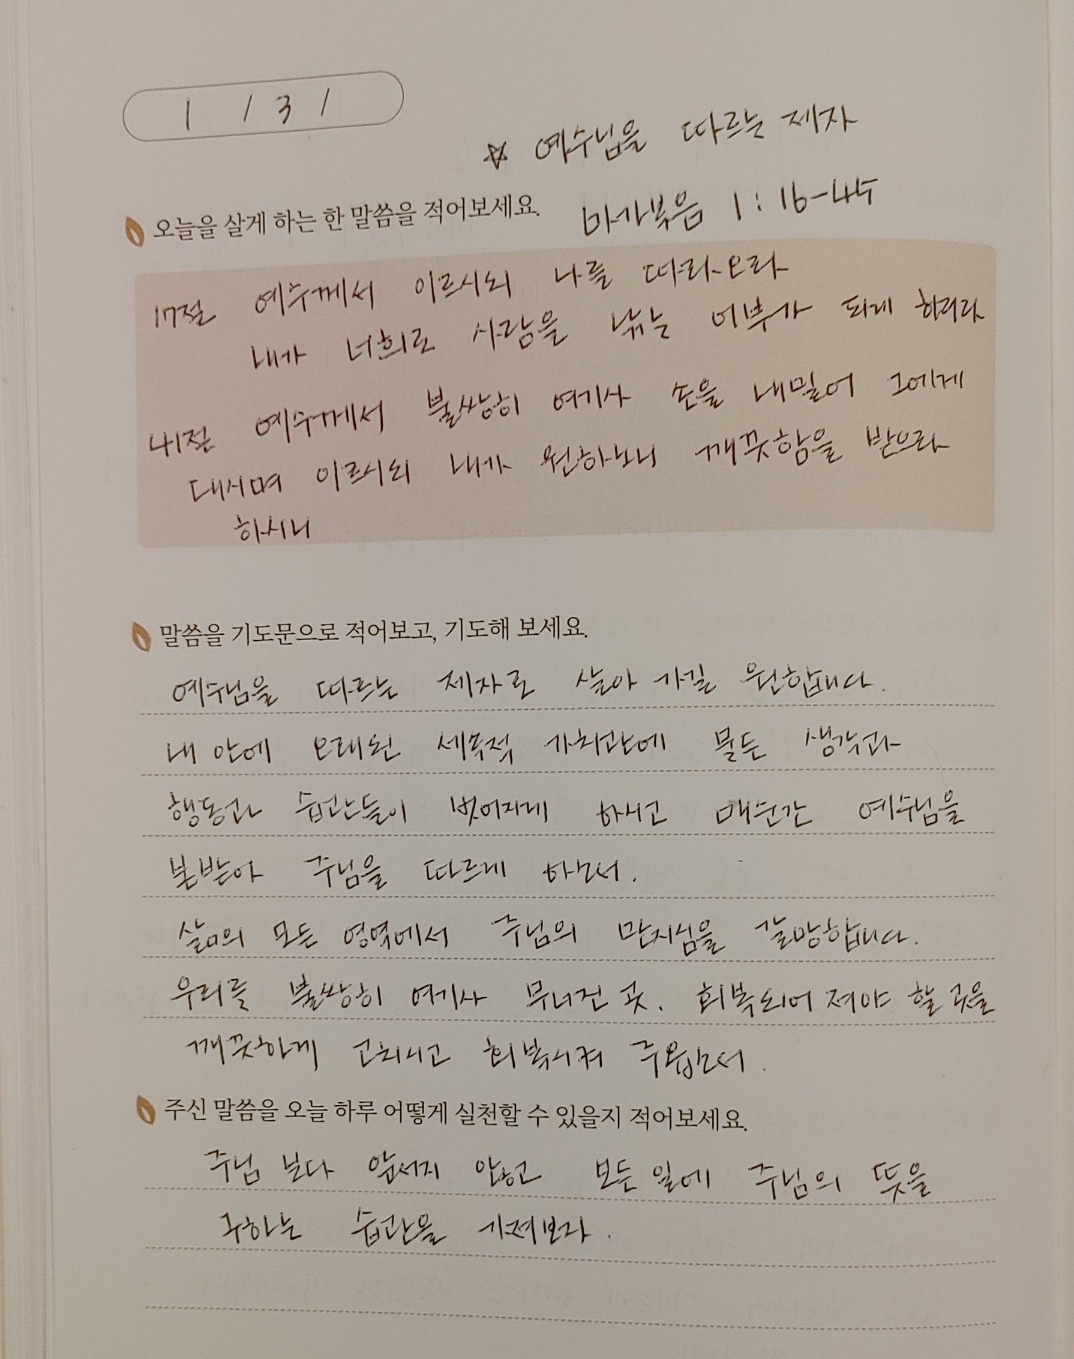 1 / 31
☆ 예수님을 따르는 제자
오늘을 살게 하는 한 말씀을 적어보세요.
마가복음 1 : 16-45
17절 예수께서 이르시되 나를 따라오라
내가 너희로 사람을 낚는 어부가 되게 하리라
41절 예수께서 불쌍히 여기사 손을 내밀어 그에게
대시며 이르시되 내가 원하노니 깨끗함을 받으라
하시니
말씀을 기도문으로 적어보고, 기도해 보세요.
예수님을 따르는 제자로 살아 가길 원합니다.
내 안에 오래된 세속적 가치관에 물든 생각과
행동과 습관들이 벗어지게 하시고 매순간 예수님을
본받아 주님을 따르게 하소서.
삶의 모든 영역에서 주님의 만지심을 갈망합니다.
우리를 불쌍히 여기사 무너진 곳. 회복되어 져야 할 곳을
깨끗하게 고치시고 회복시켜 주옵소서.
주신 말씀을 오늘 하루 어떻게 실천할 수 있을지 적어보세요.
주님 보다 앞서지 않고 모든 일에 주님의 뜻을
구하는 습관을 가져보자.